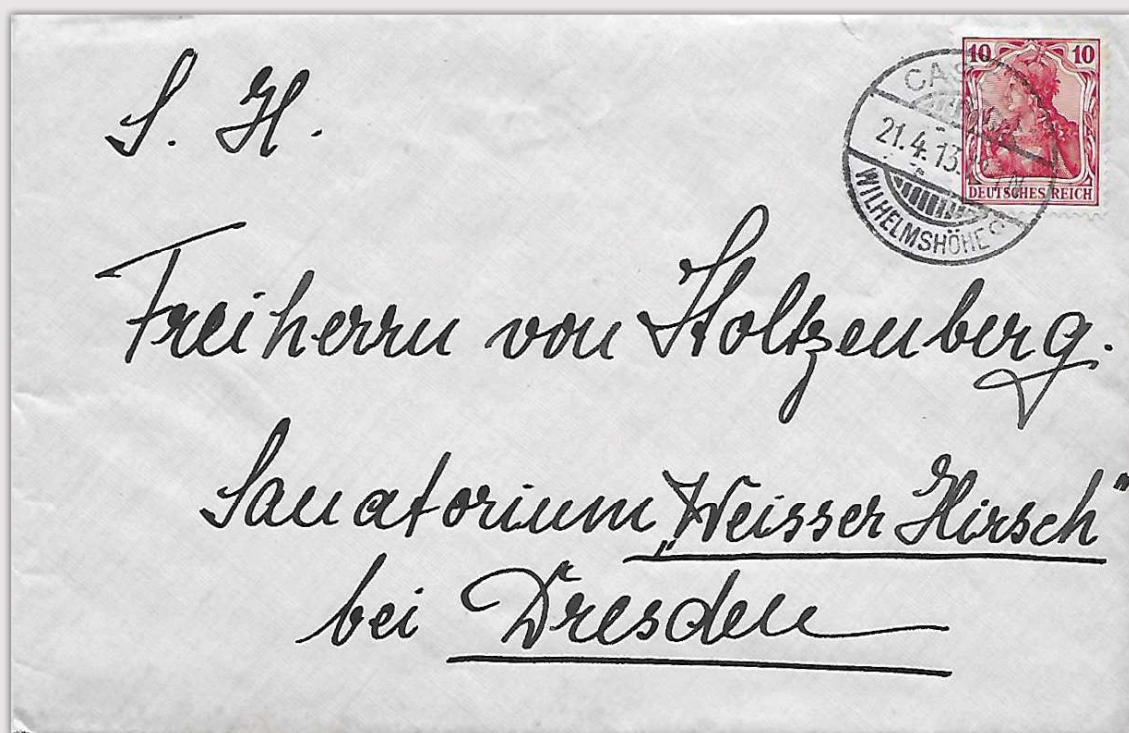 S. H.
10 10
DEUTSCHES REICH
21.4.13.
WILHELMSHÖHE
Freiherrn von Stoltzenberg.
Sanatorium „Weisser Hirsch“
bei Dresden